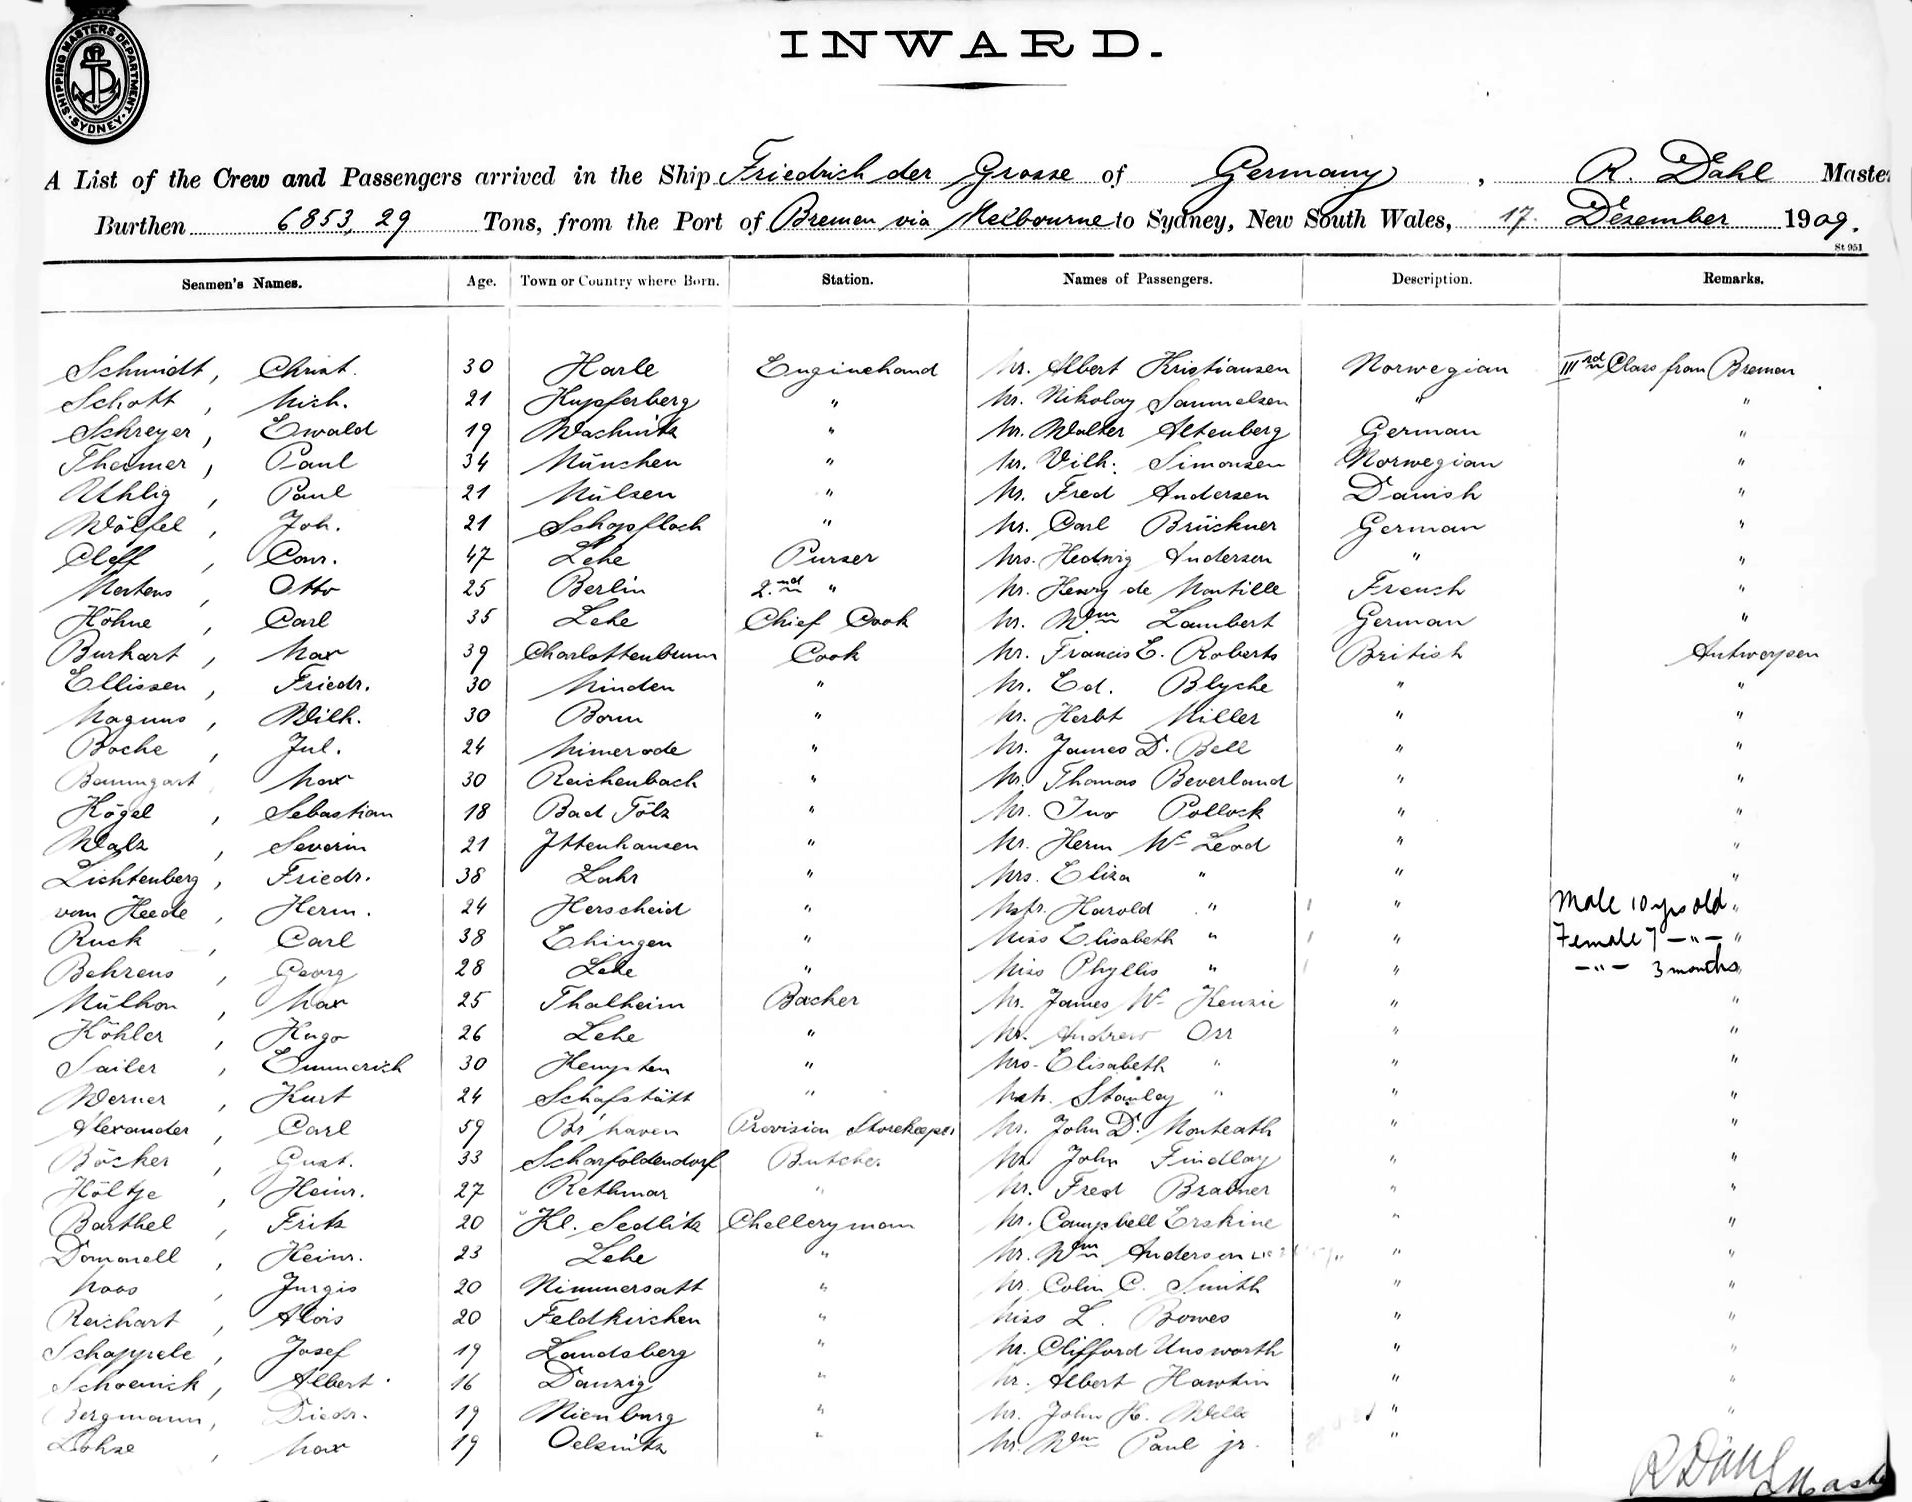 SHIPPING MASTERS DEPARTMENT · SYDNEY ·
INWARD.
A List of the Crew and Passengers arrived in the Ship Friedrich der Grosse of Germany, R. Dahl Master
Burthen 6853,29 Tons, from the Port of Bremen via Melbourne to Sydney, New South Wales, 17. Desember 1909.
St 951
Seamen's Names. Age. Town or Country where Born. Station. Names of Passengers. Description. Remarks.
Schmidt, Christ. 30 Harle Enginehand Mr. Albert Kristiansen Norwegian IIIrd Class from Bremen
Schott, Mich. 21 Kupferberg " Mr. Nikolay Samuelsen " "
Schreyer, Ewald 19 Wachwitz " Mr. Walter Altenberg German "
Theimer, Paul 34 München " Mr. Vilh. Simonsen Norwegian "
Uhlig, Paul 21 Mülsen " Mr. Fred Andersen Danish "
Wölfel, Joh. 21 Schopfloch " Mr. Carl Brückner German "
Cleff, Conr. 47 Lehe Purser Mrs. Hedwig Andersen " "
Mertens, Otto 25 Berlin 2nd " Mr. Henry de Montille French "
Höhne, Carl 35 Lehe Chief Cook Mr. Wm Lambert German "
Burkart, Max 39 Charlottenbrunn Cook Mr. Francis E. Roberts British Antwerpen
Ellissen, Friedr. 30 Minden " Mr. Ed. Blyche " "
Magnus, Wilh. 30 Bonn " Mr. Herbt Miller " "
Boche, Jul. 24 Mimerode " Mr. James D. Bell " "
Baumgart, Max 30 Reichenbach " Mr. Thomas Beverland " "
Kögel, Sebastian 18 Bad Tölz " Mr. Ino Pollock " "
Walz, Severin 21 Ittenhausen " Mr. Herm Mc Leod " "
Lichtenberg, Friedr. 38 Lahr " Mrs. Eliza " " "
vom Heede, Herm. 24 Herscheid " Mstr. Harold " " Male 10 yrs old "
Ruck, Carl 38 Ehingen " Miss Elisabeth " " Female 7 -"- "
Behrens, Georg 28 Lehe " Miss Phyllis " " -"- 3 months "
Mülhon, Max 25 Thalheim Backer Mr. James Mc Kenzie " "
Köhler, Hugo 26 Lehe " Mr. Andrew Orr " "
Sailer, Emmerich 30 Kempten " Mrs. Elisabeth " " "
Werner, Kurt 24 Schafstätt " Mstr. Stanley " " "
Alexander, Carl 59 Br'haven Provision Storekeeper Mr. John D. Monteath " "
Böcker, Gust. 33 Scharfoldendorf Butcher Mr. John Findlay " "
Höltje, Heinr. 27 Rethmar " Mr. Fred Brabner " "
Barthel, Fritz 20 Kl. Sedlitz Chelleryman Mr. Campbell Erskine " "
Domarell, Heinr. 23 Lehe " Mr. Wm Andersen " "
Moos, Jurgis 20 Nimmersatt " Mr. Colin C. Smith " "
Reichart, Alois 20 Feldkirchen " Miss L. Bowes " "
Schappele, Josef 19 Landsberg " Mr. Clifford Unsworth " "
Schoenick, Albert 16 Danzig " Mr. Albert Hawkin " "
Bergmann, Diedr. 19 Nienburg " Mr. John H. Wells " "
Lohse, Max 19 Oelsnitz " Mr. Wm Paul jr. "
R Dahl Master